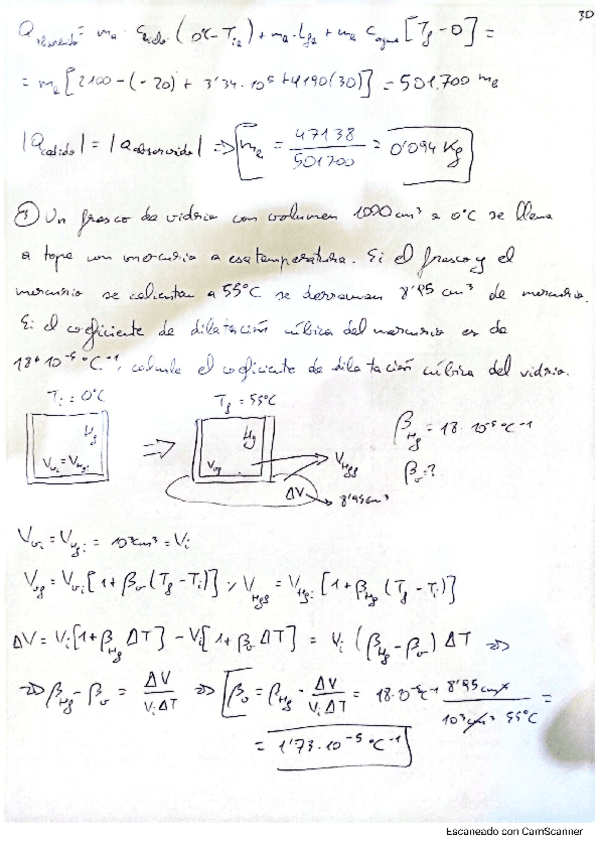 30
Q absorbido = mₑ · c hielo · (0°C - Tᵢₑ) + mₑ · L fₑ + mₑ c agua [T f - 0] =
= mₑ [2100 - (-20) + 3'34·10⁵ + 4190(30)] = 501.700 mₑ
|Q cedido| = |Q absorvido| ⇒ mₑ = 47138 / 501700 = 0'094 Kg
③ Un frasco de vidrio con volumen 1000 cm³ a 0°C se llena
a tope con mercurio a esa temperatura. Si el frasco y el
mercurio se calientan a 55°C se derraman 8'95 cm³ de mercurio.
Si el coeficiente de dilatación cúbica del mercurio es de
18·10⁻⁵ °C⁻¹, calcule el coeficiente de dilatación cúbica del vidrio.
Tᵢ = 0°C T f = 55°C
Hg Hg β Hg = 18·10⁻⁵ °C⁻¹
V vᵢ = V Hgᵢ V vf V Hgf β v ?
ΔV → 8'95 cm³
V vᵢ = V Hgᵢ = 10³ cm³ = Vᵢ
V vf = V vᵢ [1 + β v (T f - Tᵢ)] ; V Hgf = V Hgᵢ [1 + β Hg (T f - Tᵢ)]
ΔV = Vᵢ [1 + β Hg ΔT] - Vᵢ [1 + β v ΔT] = Vᵢ (β Hg - β v) ΔT ⇒
⇒ β Hg - β v = ΔV / Vᵢ ΔT ⇒ β v = β Hg - ΔV / Vᵢ ΔT = 8'95 cm³ / 10³ cm³ 55°C =
= 1'73·10⁻⁵ °C⁻¹
Escaneado con CamScanner